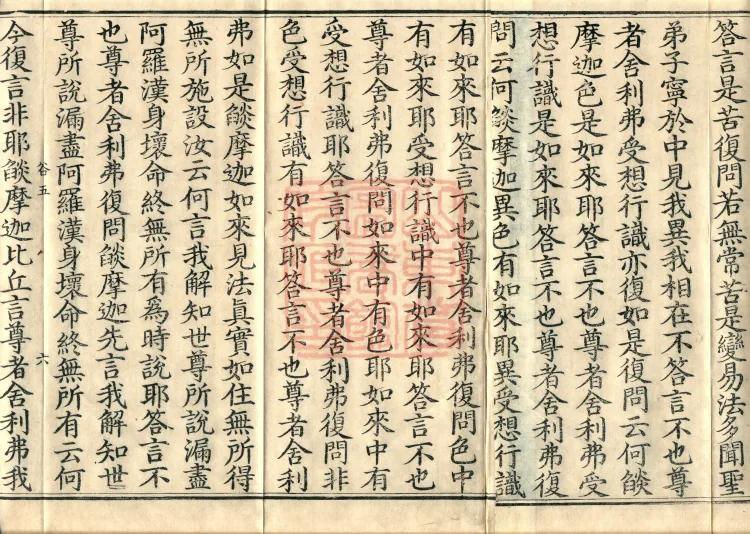 答言是苦復問若無常苦是變易法多聞聖
弟子寧於中見我異我相在不答言不也尊
者舍利弗受想行識亦復如是復問云何燄
摩迦色是如來耶答言不也尊者舍利弗受
想行識是如來耶答言不也尊者舍利弗復
問云何燄摩迦異色有如來耶異受想行識
有如來耶答言不也尊者舍利弗復問色中
有如來耶受想行識中有如來耶答言不也
尊者舍利弗復問如來中有色耶如來中有
受想行識耶答言不也尊者舍利弗復問非
色受想行識有如來耶答言不也尊者舍利
弗如是燄摩迦如來見法真實如住無所得
無所施設汝云何言我解知世尊所說漏盡
阿羅漢身壞命終無所有為時說耶答言不
也尊者舍利弗復問燄摩迦先言我解知世
尊所說漏盡阿羅漢身壞命終無所有云何
卷五 六
今復言非耶燄摩迦比丘言尊者舍利弗我